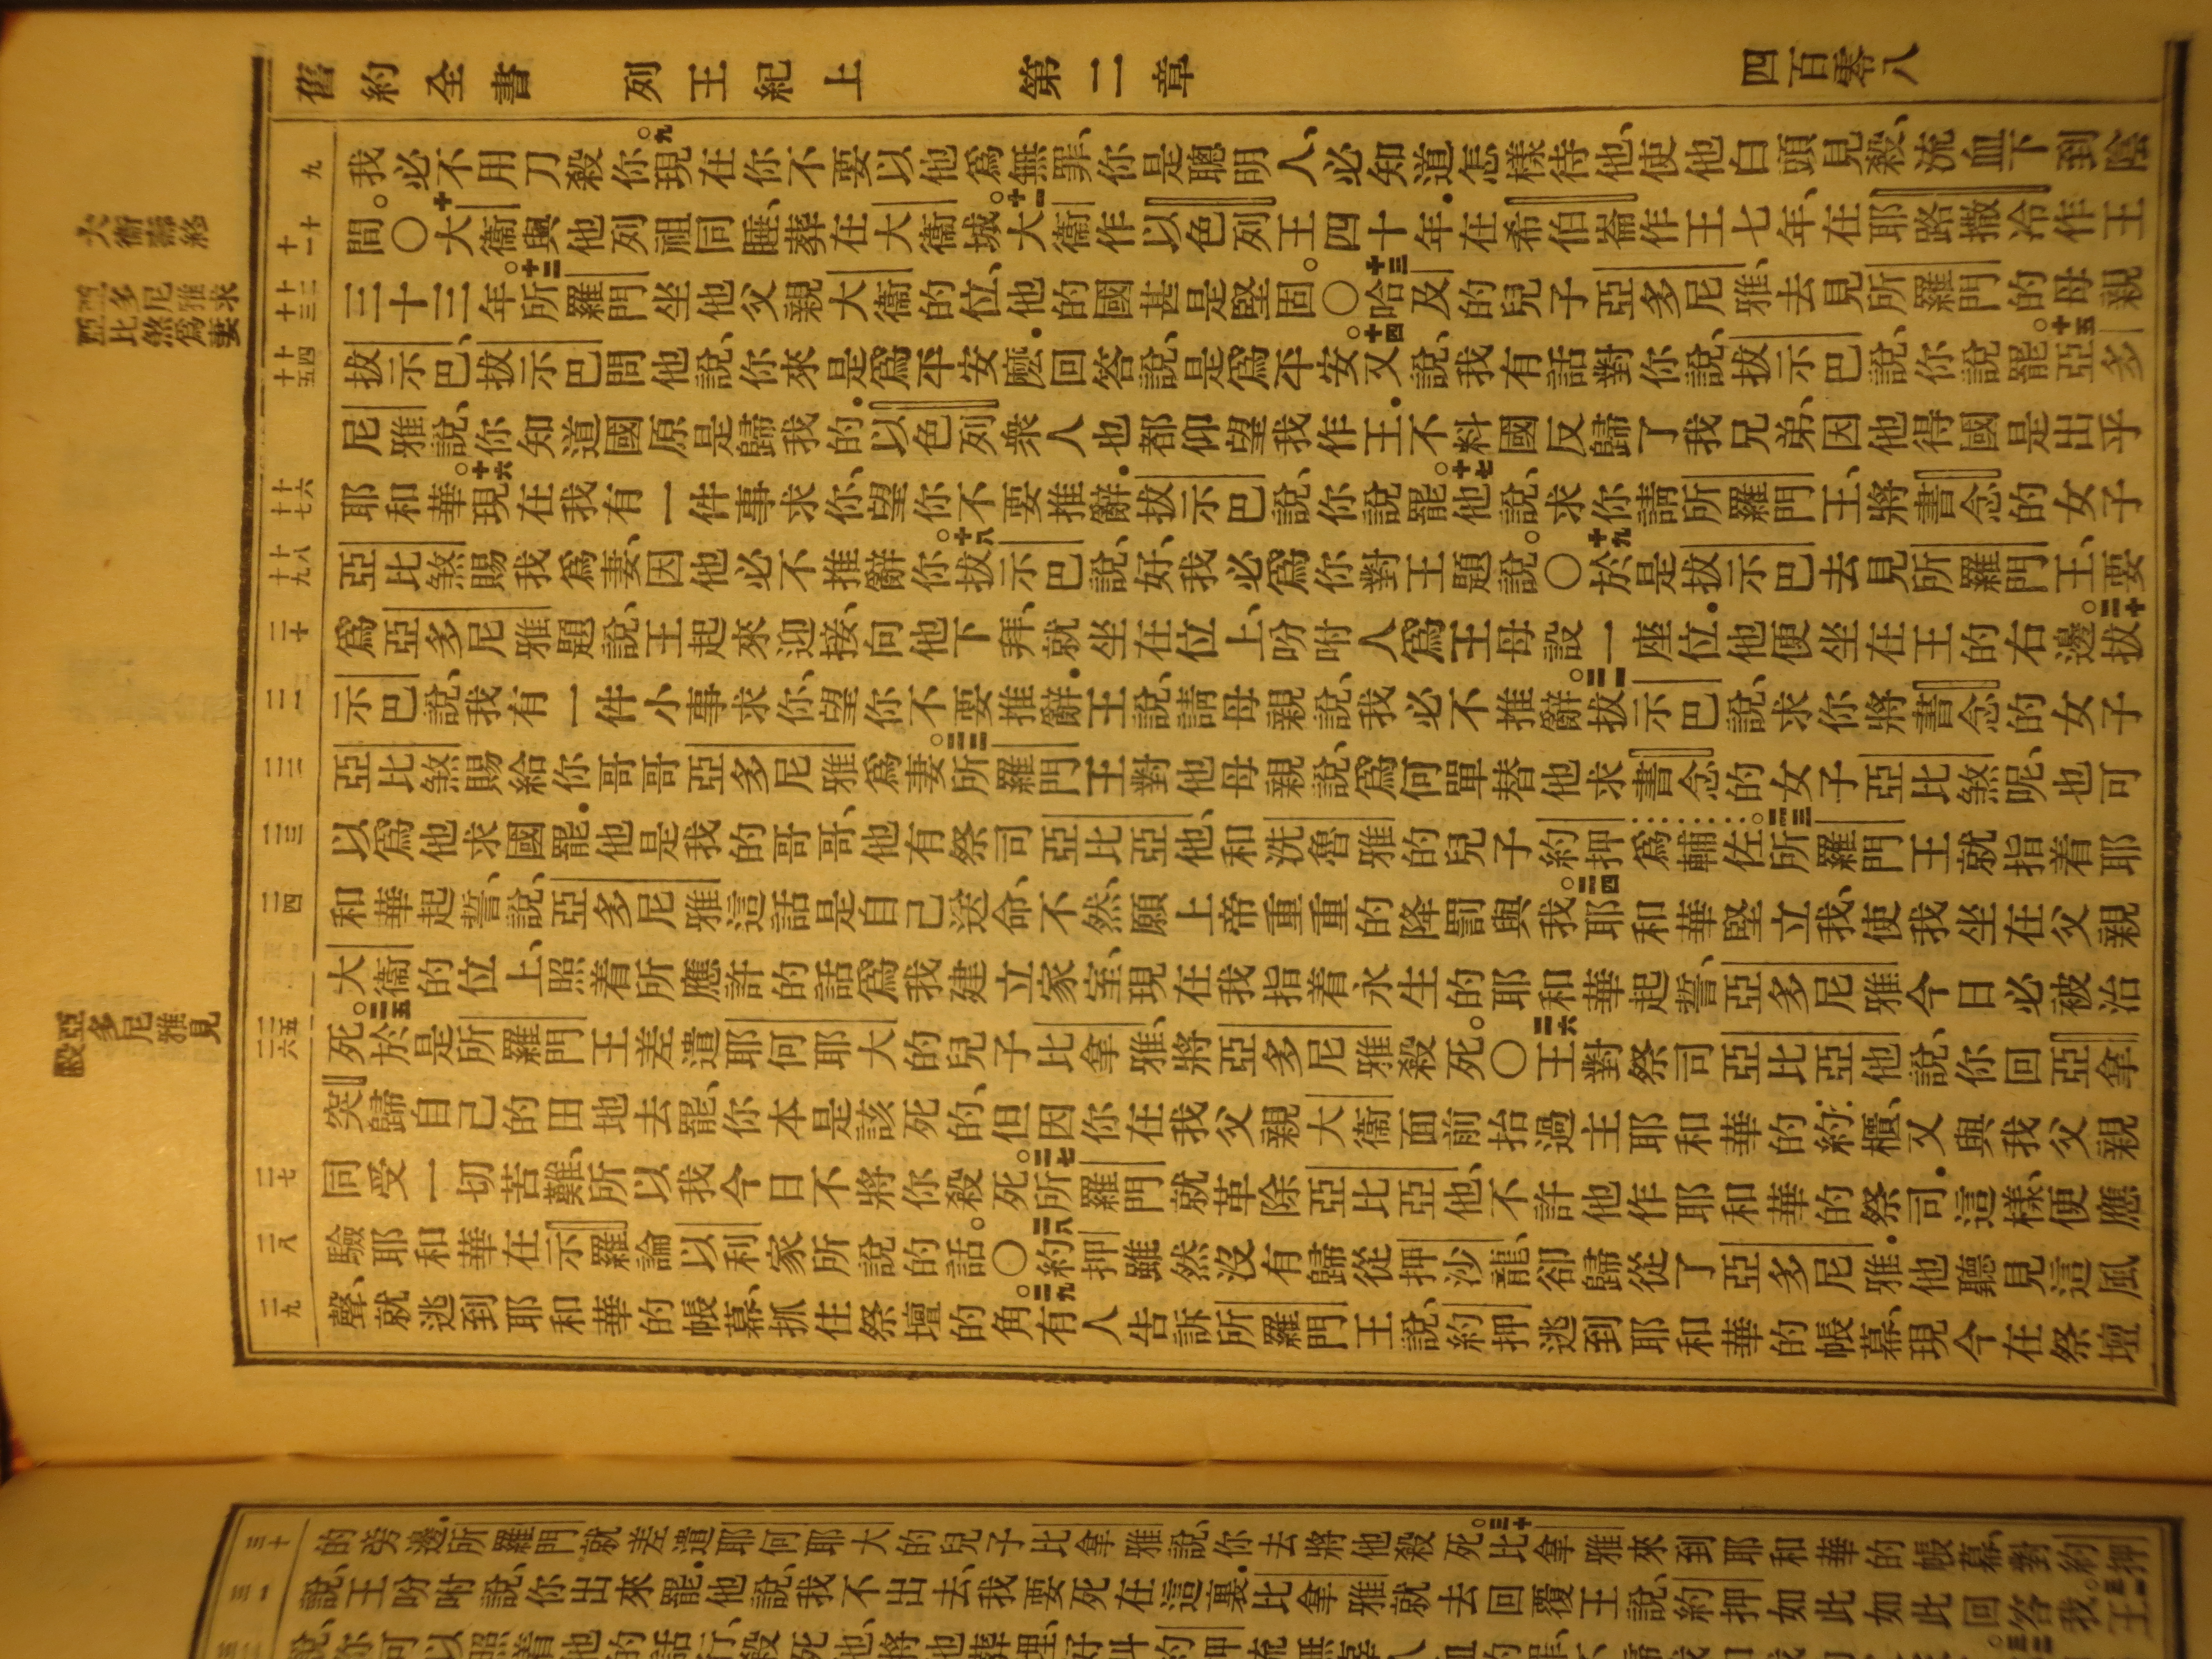 舊約全書　列王紀上　第二章　四百零八
九
我必不用刀殺你。九現在你不要以他爲無罪、你是聰明人、必知道怎樣待他、使他白頭見殺、流血下到陰
十 十一
間。〇十大衞與他列祖同睡、葬在大衞城。十一大衞作以色列王四十年．在希伯崙作王七年、在耶路撒冷作王
十二 十三
三十三年。十二所羅門坐他父親大衞的位、他的國甚是堅固。〇十三哈及的兒子亞多尼雅、去見所羅門的母親
十四 十五
拔示巴、拔示巴問他說、你來是爲平安麼．回答說、是爲平安。十四又說、我有話對你說、拔示巴說、你說罷。十五亞多
尼雅說、你知道國原是歸我的．以色列衆人也都仰望我作王．不料國反歸了我兄弟、因他得國是出乎
十六 十七
耶和華。十六現在我有一件事求你、望你不要推辭．拔示巴說、你說罷。十七他說、求你請所羅門王、將書念的女子
十八 十九
亞比煞賜我爲妻、因他必不推辭你。十八拔示巴說、好、我必爲你對王題說。〇十九於是拔示巴去見所羅門王、要
二十
爲亞多尼雅題說、王起來迎接、向他下拜、就坐在位上、吩咐人爲王母設一座位．他便坐在王的右邊。二十拔
二一
示巴說、我有一件小事求你、望你不要推辭．王說、請母親說、我必不推辭。二一拔示巴說、求你將書念的女子
二二
亞比煞賜給你哥哥亞多尼雅爲妻。二二所羅門王對他母親說、爲何單替他求書念的女子亞比煞呢、也可
二三
以爲他求國罷．他是我的哥哥、他有祭司亞比亞他、和洗魯雅的兒子約押爲輔佐。二三所羅門王就指着耶
二四
和華起誓、說、亞多尼雅這話是自己送命、不然、願上帝重重的降罰與我。二四耶和華堅立我、使我坐在父親
大衞的位上、照着所應許的話爲我建立家室、現在我指着永生的耶和華起誓、亞多尼雅今日必被治
二五 二六
死。二五於是所羅門王差遣耶何耶大的兒子比拿雅、將亞多尼雅殺死。〇二六王對祭司亞比亞他說、你回亞拿
突歸自己的田地去罷、你本是該死的、但因你在我父親大衞面前抬過主耶和華的約櫃、又與我父親
二七
同受一切苦難、所以我今日不將你殺死。二七所羅門就革除亞比亞他、不許他作耶和華的祭司．這樣、便應
二八
驗耶和華在示羅論以利家所說的話。〇二八約押雖然沒有歸從押沙龍、卻歸從了亞多尼雅．他聽見這風
二九
聲、就逃到耶和華的帳幕、抓住祭壇的角。二九有人告訴所羅門王說、約押逃到耶和華的帳幕、現今在祭壇
大衞壽終
亞多尼雅求
亞比煞爲妻
亞多尼雅見
殺
三十
的旁邊．所羅門就差遣耶何耶大的兒子比拿雅說、你去將他殺死。三十比拿雅來到耶和華的帳幕、對約押
三一
說、王吩咐說、你出來罷．他說、我不出去、我要死在這裏．比拿雅就去回覆王說、約押如此如此回答我。三一王
說、你可以照着他的話行、殺死他、將他葬埋、好叫約押流無辜人血的罪、不